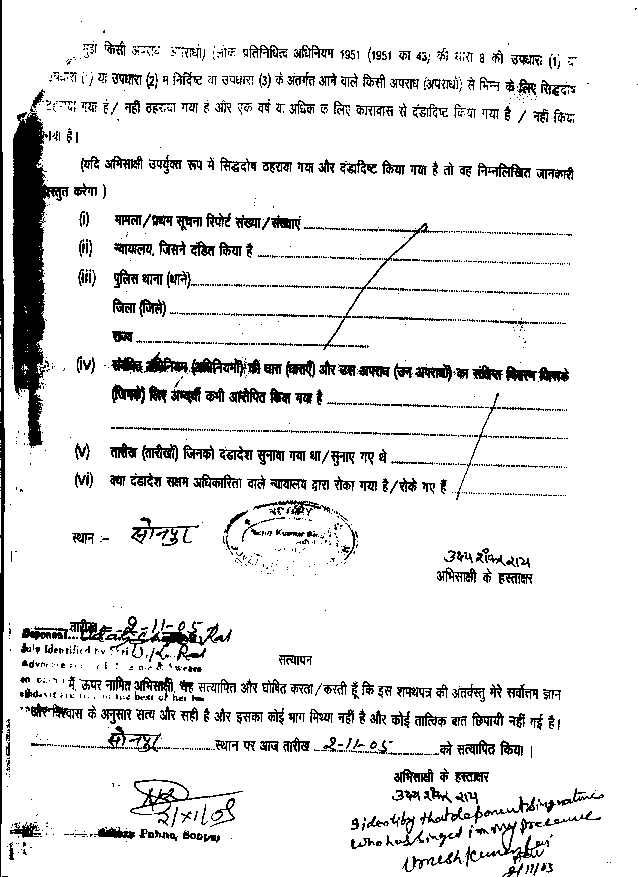 मुझे किसी अपराध (अपराधों) (लोक प्रतिनिधित्व अधिनियम 1951 (1951 का 43) की धारा 8 की उपधारा (1) या
उपधारा ( ) या उपधारा (2) में निर्दिष्ट या उपधारा (3) के अंतर्गत आने वाले किसी अपराध (अपराधों) से भिन्न के लिए सिद्धदोष
ठहराया गया है / नहीं ठहराया गया है और एक वर्ष या अधिक के लिए कारावास से दंडादिष्ट किया गया है / नहीं किया
गया है।
(यदि अभिसाक्षी उपर्युक्त रूप में सिद्धदोष ठहराया गया और दंडादिष्ट किया गया है तो वह निम्नलिखित जानकारी
प्रस्तुत करेगा )
(i) मामला/प्रथम सूचना रिपोर्ट संख्या/संख्याएं
(ii) न्यायालय, जिसने दंडित किया है
(iii) पुलिस थाना (थाने)
जिला (जिले)
राज्य
(iv) संबंधित अधिनियम (अधिनियमों) की धारा (धाराएँ) और उस अपराध (उन अपराधों) का संक्षिप्त विवरण जिसके
(जिनके) लिए अभ्यर्थी कभी आरोपित किया गया है
(v) तारीख (तारीखों) जिनको दंडादेश सुनाया गया था/सुनाए गए थे
(vi) क्या दंडादेश सक्षम अधिकारिता वाले न्यायालय द्वारा रोका गया है/रोके गए हैं
स्थान :- सोनपुर
अभिसाक्षी के हस्ताक्षर
तारीख 2-11-05
Deponent Rai
Identified by Sri D. K. Rai
सत्यापन
मैं, ऊपर नामित अभिसाक्षी, यह सत्यापित और घोषित करता/करती हूँ कि इस शपथपत्र की अंतर्वस्तु मेरे सर्वोत्तम ज्ञान
और विश्वास के अनुसार सत्य और सही है और इसका कोई भाग मिथ्या नहीं है और कोई तात्विक बात छिपायी नहीं गई है।
सोनपुर स्थान पर आज तारीख 2-11-05 को सत्यापित किया।
अभिसाक्षी के हस्ताक्षर
I identify that deponent Signature
who has singed in my presence
Umesh Kumar Rai